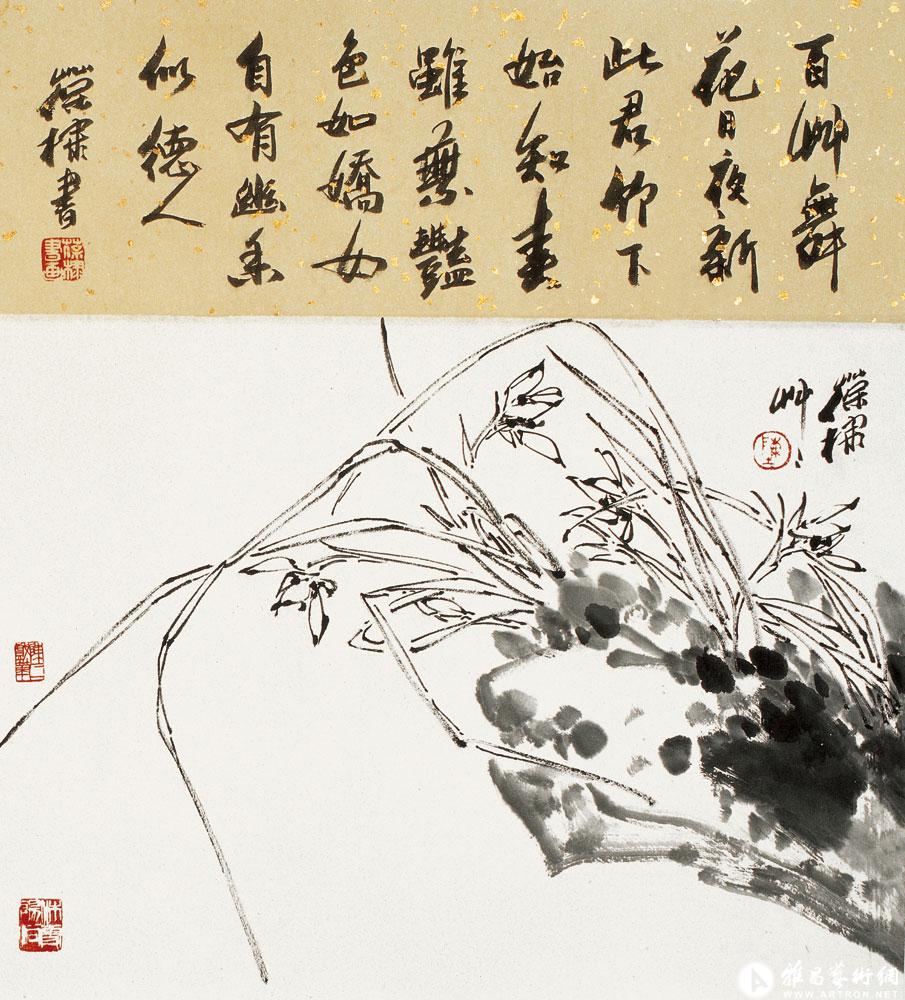 百艸舞
花日夜新
此君竹下
始知春
雖無豔
色如嬌女
自有幽香
似德人
葆棣書
葆棣
艸艸
陸
雅昌藝術網
WWW.ARTRON.NET